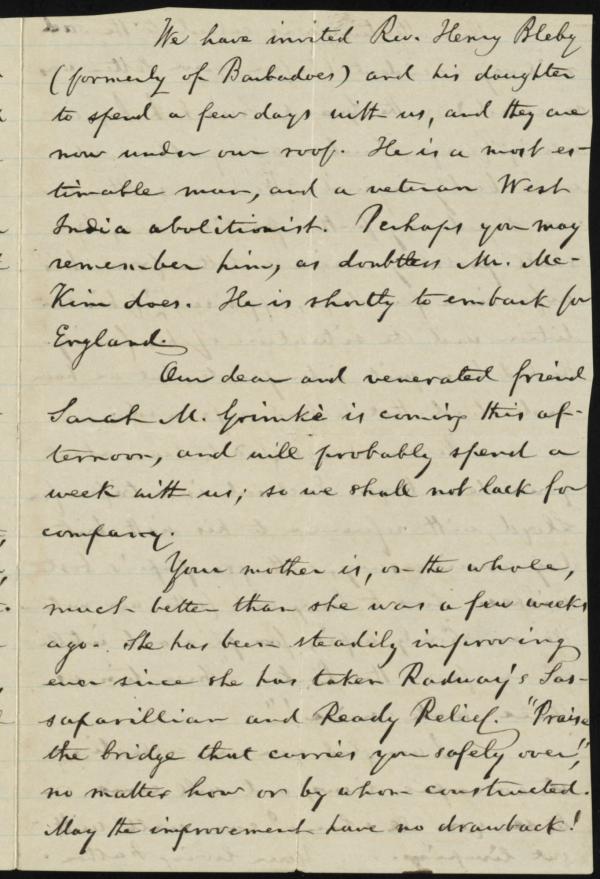 We have invited Rev. Henry Bleby
(formerly of Barbadoes) and his daughter
to spend a few days with us, and they are
now under our roof. He is a most es-
timable man, and a veteran West
India abolitionist. Perhaps you may
remember him, as doubtless Mr. Mc-
Kim does. He is shortly to embark for
England.
Our dear and venerated friend
Sarah M. Grimkè is coming this af-
ternoon, and will probably spend a
week with us; so we shall not lack for
company.
Your mother is, on the whole,
much better than she was a few weeks
ago. She has been steadily improving
ever since she has taken Radway's Sar-
saparillian and Ready Relief. "Praise
the bridge that carries you safely over!",
no matter how or by whom constructed.
May the improvement have no drawback!